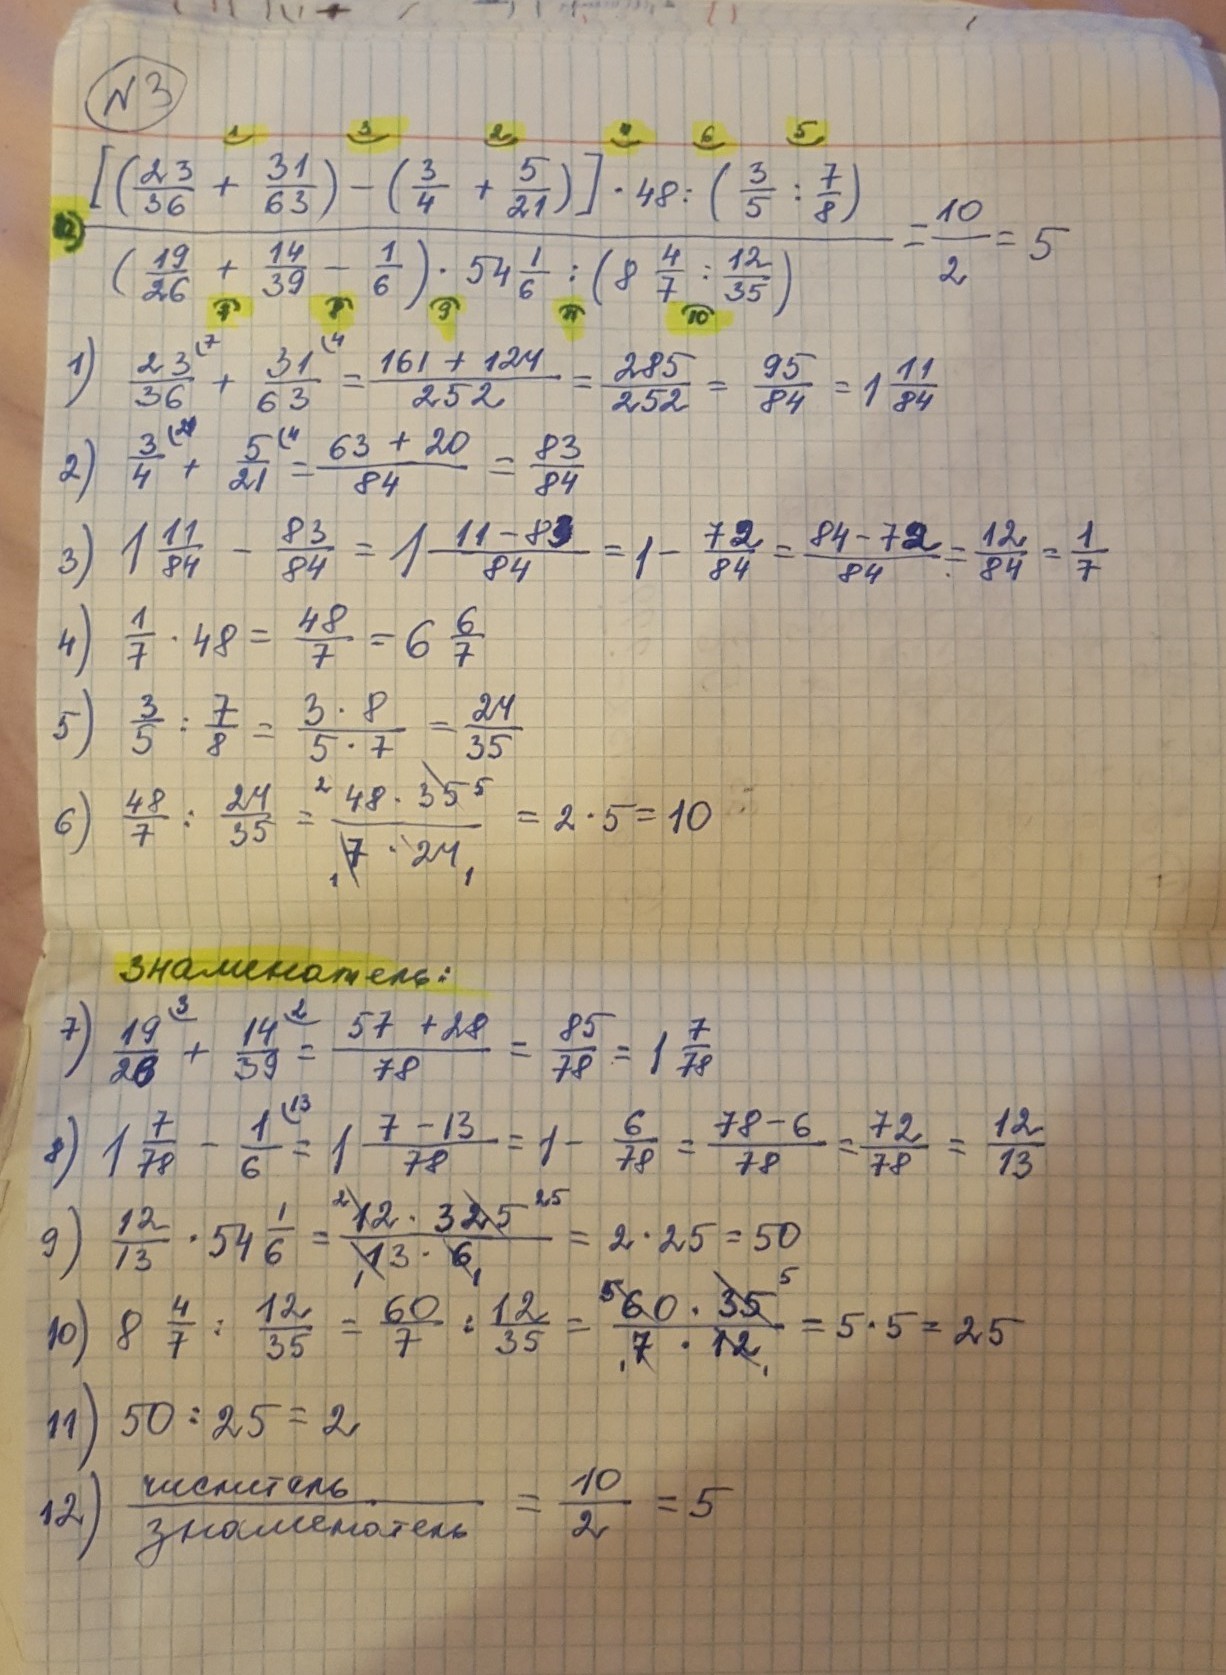 №3
1 3 2 4 6 5
[(23/36 + 31/63) - (3/4 + 5/21)] · 48 : (3/5 : 7/8)
12) = 10/2 = 5
(19/26 + 14/39 - 1/6) · 54 1/6 : (8 4/7 : 12/35)
7 8 9 11 10
1) 23/36 (7 + 31/63 (4 = 161 + 124/252 = 285/252 = 95/84 = 1 11/84
2) 3/4 (21 + 5/21 (4 = 63 + 20/84 = 83/84
3) 1 11/84 - 83/84 = 1 11 - 83/84 = 1 - 72/84 = 84 - 72/84 = 12/84 = 1/7
4) 1/7 · 48 = 48/7 = 6 6/7
5) 3/5 : 7/8 = 3 · 8/5 · 7 = 24/35
6) 48/7 : 24/35 = 2 48 · 35 5/1 7 · 24 1 = 2 · 5 = 10
знаменатель:
7) 19/26 (3 + 14/39 (2 = 57 + 28/78 = 85/78 = 1 7/78
8) 1 7/78 - 1/6 (13 = 1 7 - 13/78 = 1 - 6/78 = 78 - 6/78 = 72/78 = 12/13
9) 12/13 · 54 1/6 = 2 12 · 325 25/1 13 · 6 1 = 2 · 25 = 50
10) 8 4/7 : 12/35 = 60/7 : 12/35 = 5 60 · 35 5/1 7 · 12 1 = 5 · 5 = 25
11) 50 : 25 = 2
12) числитель/знаменатель = 10/2 = 5